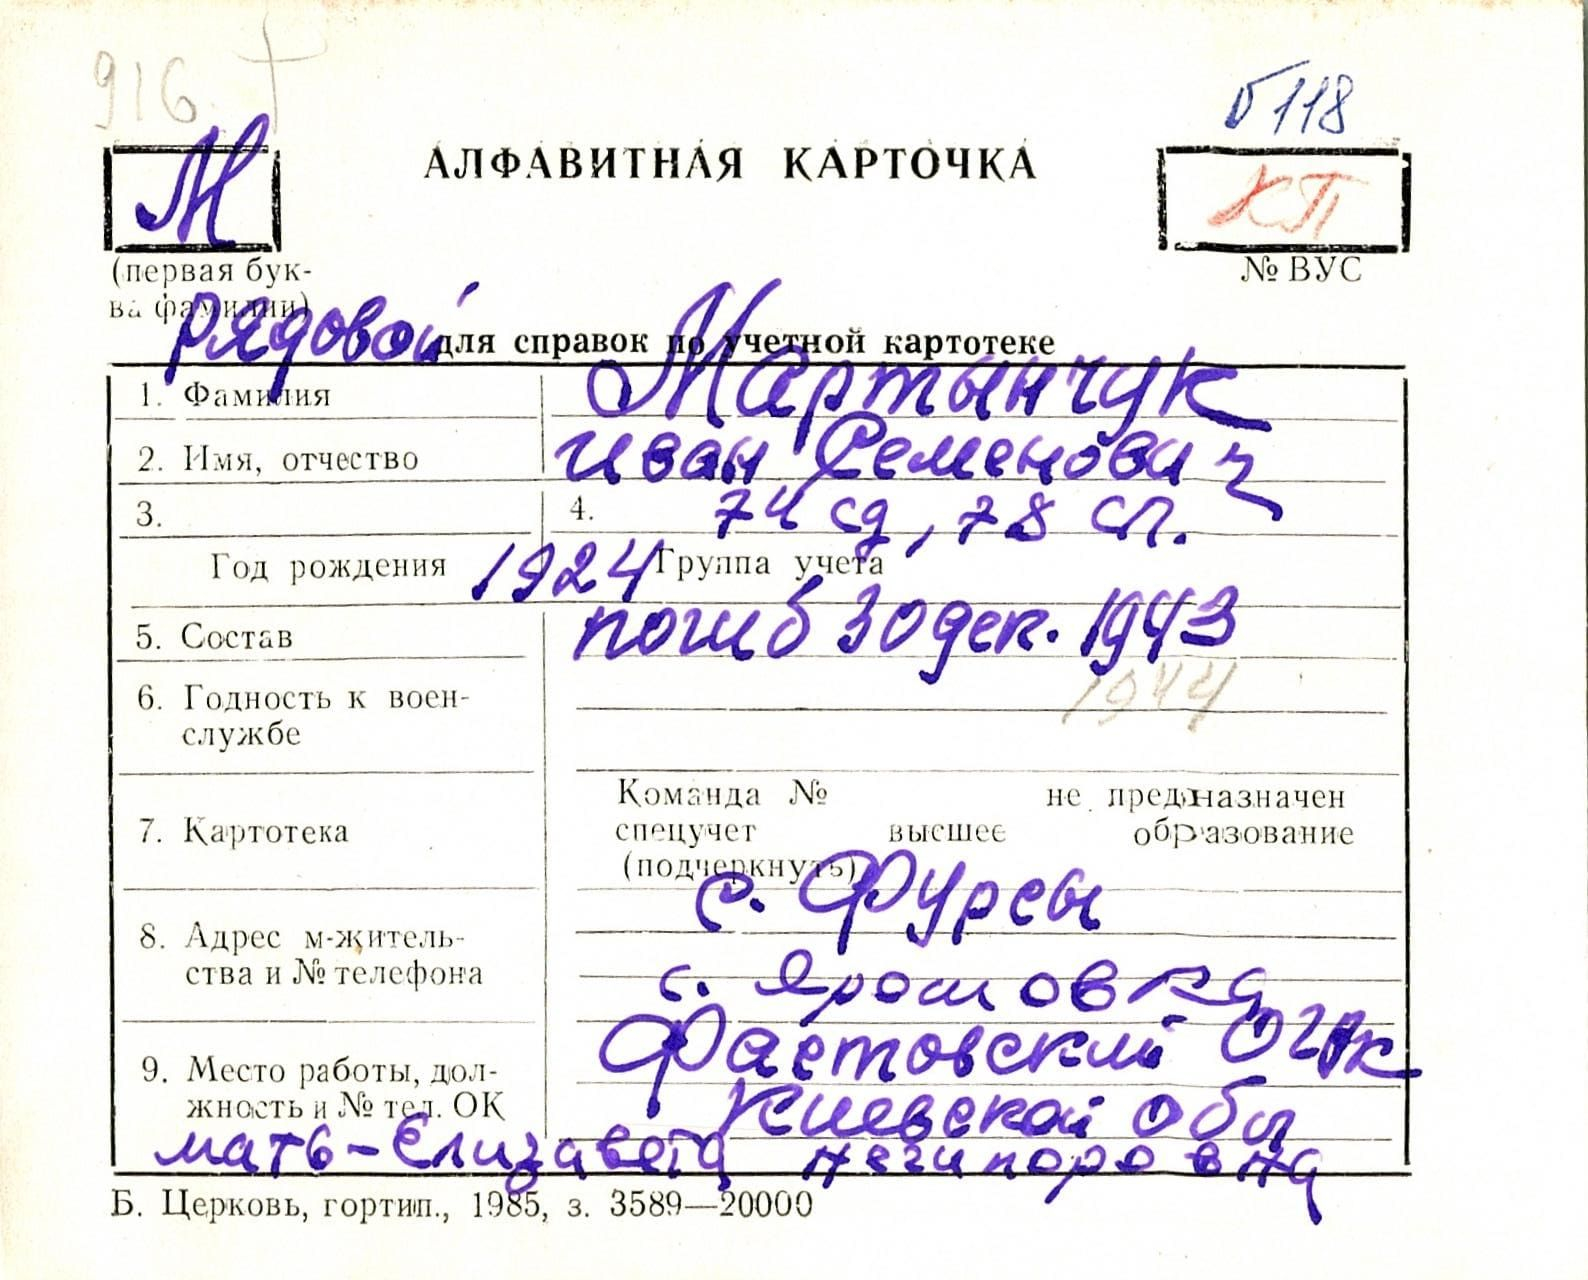 916.
б118
М
АЛФАВИТНАЯ КАРТОЧКА
КП
(первая бук-
ва фамилии)
№ ВУС
рядовой
для справок по учетной картотеке
1. Фамилия Мартынчук
2. Имя, отчество Иван Семенович
3. 4. 74 сд, 78 сп.
Год рождения 1924 Группа учета
5. Состав погиб 30 дек. 1943
1944
6. Годность к воен-
службе
Команда № не предназначен
7. Картотека спецучет высшее образование
(подчеркнуть)
с. Фурсы
8. Адрес м-житель-
ства и № телефона с. Ярошовка
Фастовский ОГВК
9. Место работы, дол-
жность и № тел. ОК Киевской обл
мать - Елизавета Нечипоровна
Б. Церковь, гортип., 1985, з. 3589—20000